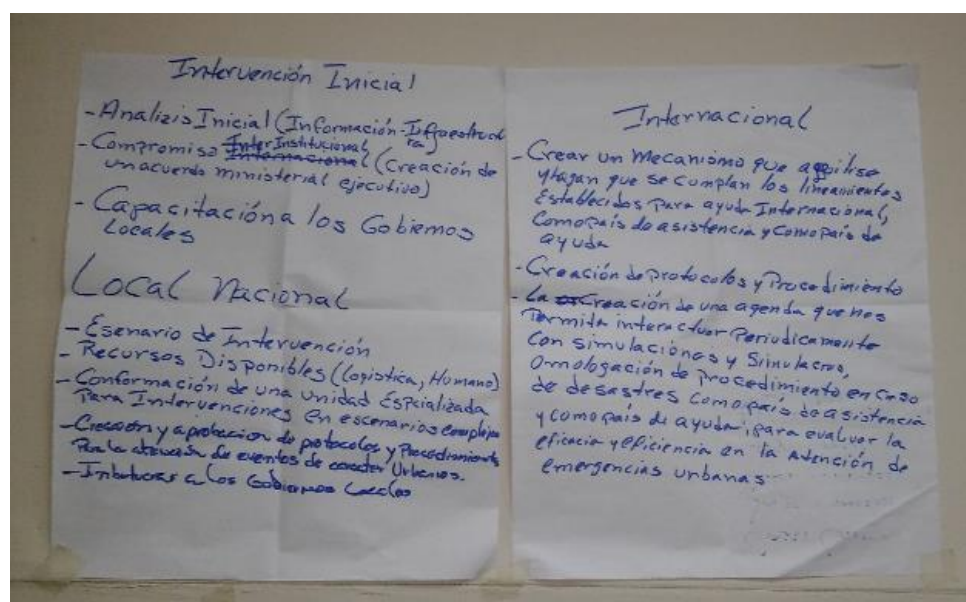 Intervención Inicial
- Analizis Inicial (Información - Ifraestruct
ra)
- Compromiso InterInstitucional (Creación de
un acuerdo ministerial ejecutivo)
- Capacitación a los Gobiernos
Locales
Local Nacional
- Esenario de Intervención
- Recursos Disponibles (Logistica, Humano)
- Conformación de una unidad Espcializada
Para Intervenciones en escenarios complejos
- Creación y aprobacion de protocolos y Procedimientos
Para la atención de eventos de caracter Urbanos.
- Involucrar a los Gobiernos Locales
Internacional
- Crear un Mecanismo que agilise
y hagan que se cumplan los lineamientos
Establecidos Para ayuda Internacional,
Como país de asistencia y Como País de
ayuda
- Creación de Protocolos y Procedimiento
- La Creación de una agenda que nos
Permita interactuar Periodicamente
Con simulaciónes y Simulacros,
Omologación de procedimiento en Caso
de desastres Como país de asistencia
y como país de ayuda, para evaluar la
eficacia y eficiencia en la atención de
emergencias urbanas